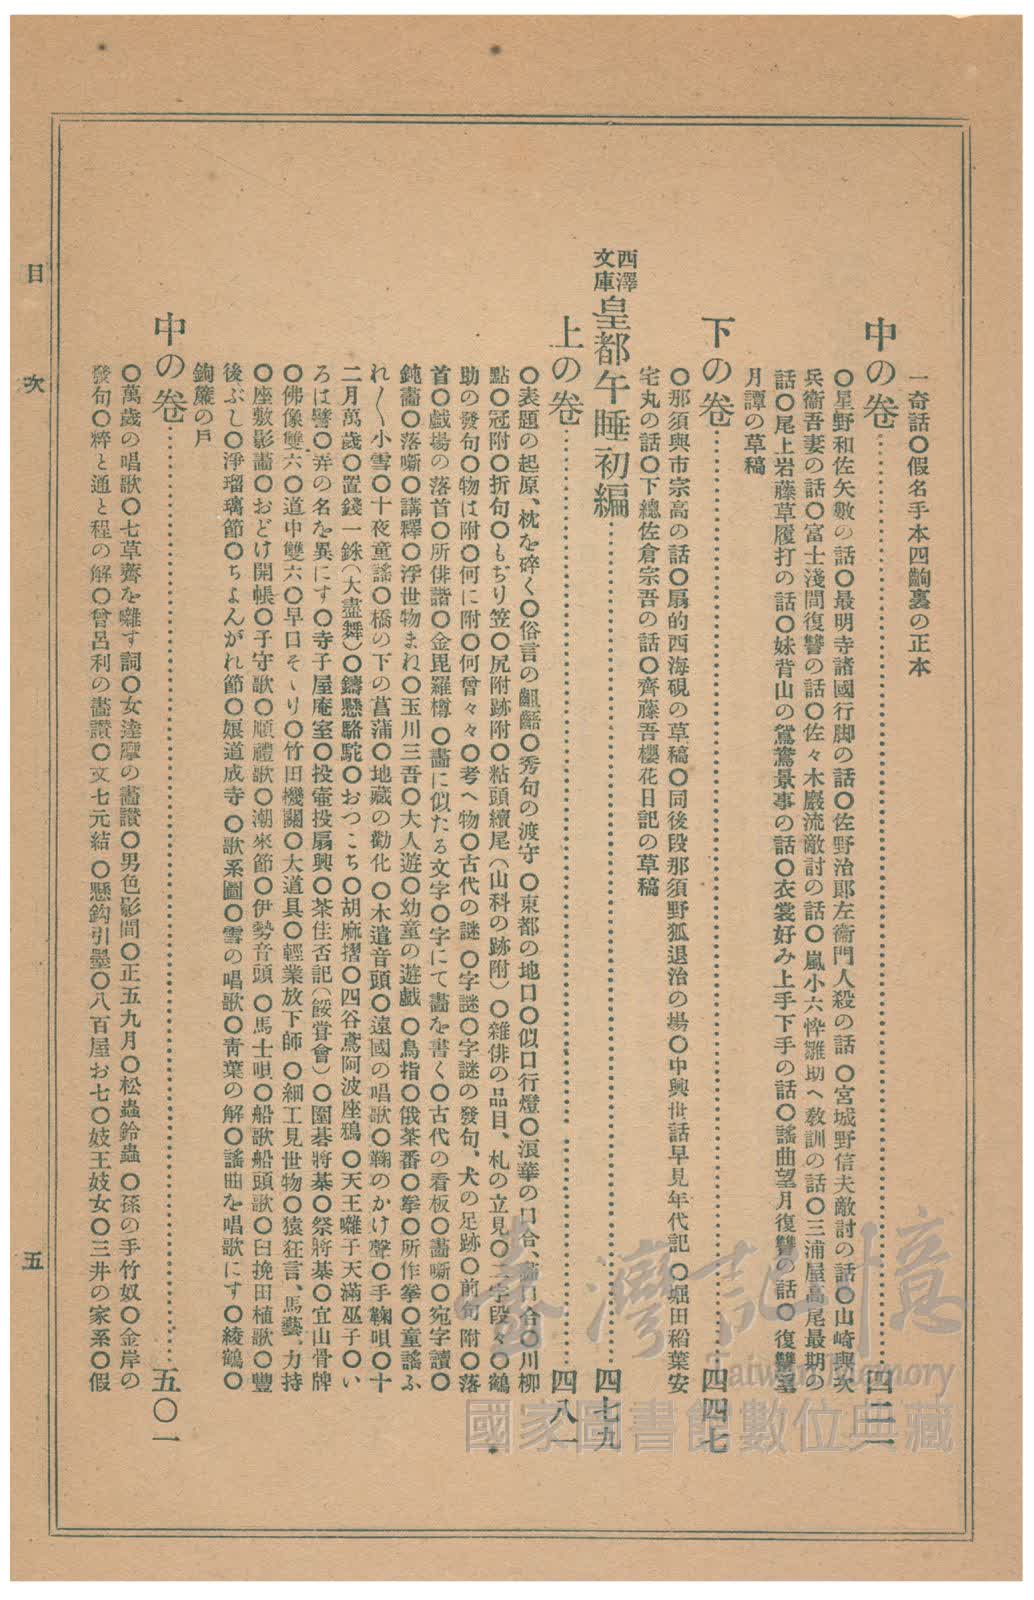 一奇話〇假名手本四齣裏の正本
中の卷……四二一
〇星野和佐矢數の話〇最明寺諸國行脚の話〇佐野治郎左衞門人殺の話〇宮城野信夫敵討の話〇山崎與次
兵衞吾妻の話〇富士淺間復讐の話〇佐々木巖流敵討の話〇嵐小六忰雛助へ敎訓の話〇三浦屋高尾最期の
話〇尾上岩藤草履打の話〇妹背山の鴛鴦景事の話〇衣裳好み上手下手の話〇謠曲望月復讐の話〇復讐望
月譚の草稿
下の卷……四四七
〇那須與市宗高の話〇扇的西海硯の草稿〇同後段那須野狐退治の場〇中興世話早見年代記〇堀田稻葉安
宅丸の話〇下總佐倉宗吾の話〇齊藤吾櫻花日記の草稿
西澤文庫皇都午睡初編……四七九
上の卷……四八一
〇表題の起原、枕を碎く〇俗言の齟齬〇秀句の渡守〇東都の地口〇似口行燈〇浪華の口合、畵口合〇川柳
點〇冠附〇折句〇もぢり笠〇尻附跡附〇粘頭續尾(山科の跡附)〇雜俳の品目、札の立見〇二字段々〇鶴
助の發句〇物は附〇何に附〇何曾々々〇考へ物〇古代の謎〇字謎〇字謎の發句、犬の足跡〇前句附〇落
首〇戲場の落首〇所俳諧〇金毘羅樽〇畵に似たる文字〇字にて畵を書く〇古代の看板〇畵噺〇宛字讀〇
鈍畵〇落噺〇講釋〇浮世物まね〇玉川三吾〇大人遊〇幼童の遊戲〇鳥指〇俄茶番〇拳〇所作拳〇童謠ふ
れ〳〵小雪〇十夜童謠〇橋の下の菖蒲〇地藏の勸化〇木遣音頭〇遠國の唱歌〇鞠のかけ聲〇手鞠唄〇十
二月萬歲〇置錢一銖(大盡舞)〇鑄懸駱駝〇おつこち〇胡麻摺〇四谷鳶阿波座鴉〇天王囃子天滿巫子〇い
ろは譬〇弄の名を異にす〇寺子屋庵室〇投壺投扇興〇茶佳否記(餒甞會)〇圍碁將棊〇祭將棊〇宜山骨牌
〇佛像雙六〇道中雙六〇早口そゝり〇竹田機關〇大道具〇輕業放下師〇細工見世物〇猿狂言、馬藝、力持
〇座敷影畵〇おどけ開帳〇子守歌〇順禮歌〇潮來節〇伊勢音頭〇馬士唄〇船歌船頭歌〇臼挽田植歌〇豐
後ぶし〇淨瑠璃節〇ちよんがれ節〇娘道成寺〇歌系圖〇雪の唱歌〇靑葉の解〇謠曲を唱歌にす〇綾鶴〇
鉤簾の戶
中の卷……五〇一
〇萬歲の唱歌〇七草薺を囃す詞〇女達摩の畵讃〇男色影間〇正五九月〇松蟲鈴蟲〇孫の手竹奴〇金岸の
發句〇粹と通と程の解〇曾呂利の畵讃〇文七元結〇懸鈎引墨〇八百屋お七〇妓王妓女〇三井の家系〇假
目次
五
臺灣記憶
Taiwan Memory
國家圖書館數位典藏